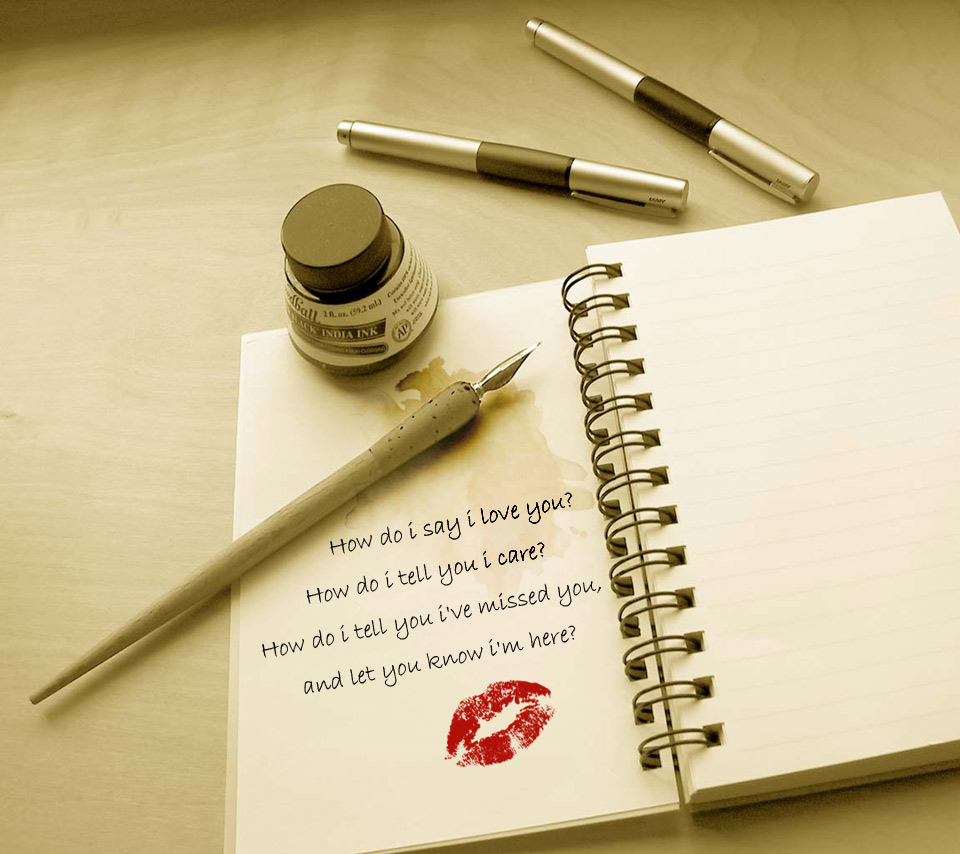 LAMY
LAMY
2 fl. oz. (59.2 ml.)
INDIA INK
AP
How do i say i love you?
How do i tell you i care?
How do i tell you i've missed you,
and let you know i'm here?